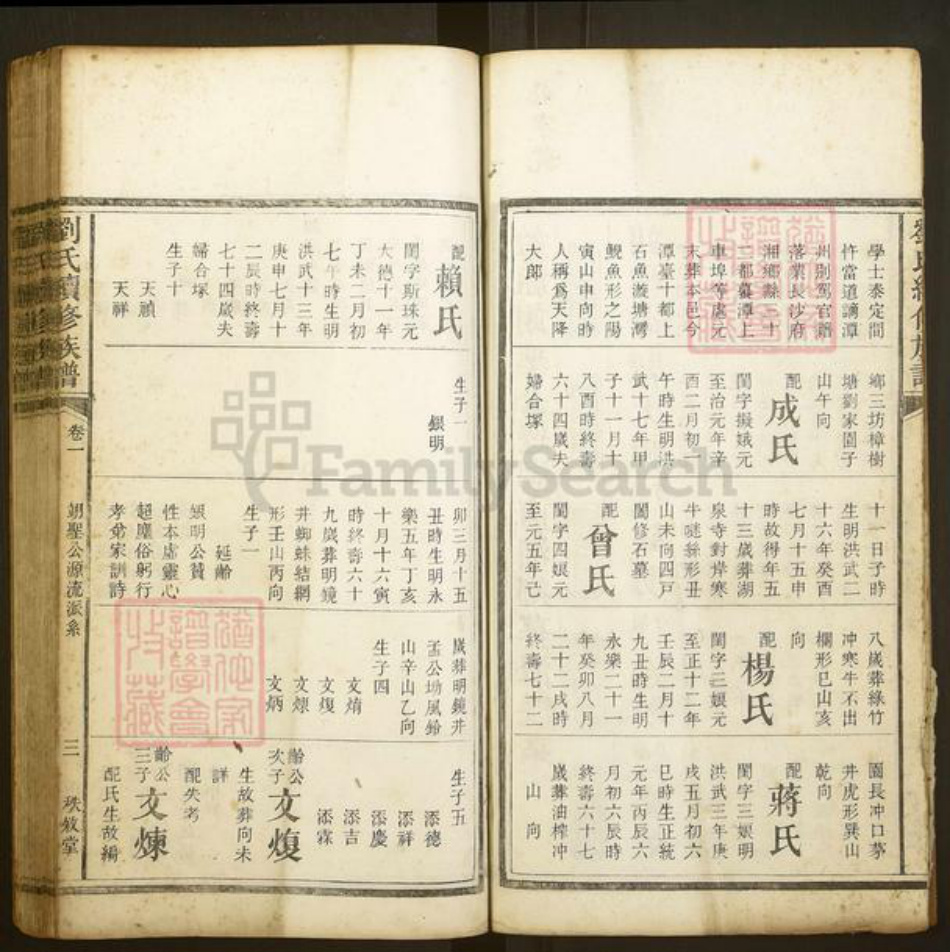 學士泰定間
忤當道謫潭
州別駕官籍
落業長沙府
湘鄉縣二十
二都墓潭上
車埠等處元
末葬本邑今
潭臺十都上
石魚漩塘灣
鯢魚形之陽
寅山申向時
人稱爲天降
大郎
鄉三坊樟樹
塘劉家園子
山午向
配成氏
閨字擬娥元
至治元年辛
酉二月初一
午時生明洪
武十七年甲
子十一月十
八酉時終壽
六十四歲夫
婦合塚
十一日子時
生明洪武二
十六年癸酉
七月十五申
時故得年五
十三歲葬湖
泉寺對岸寒
牛㘅絲形丑
山未向四戸
閤修石墓
配曾氏
閨字四娘元
至元五年己
八歲葬綠竹
冲寒牛不出
欄形巳山亥
向
配楊氏
閨字二娘元
至正十二年
壬辰二月十
九丑時生明
永樂二十一
年癸卯八月
二十二戌時
終壽七十二
園長冲口茅
井虎形巽山
乾向
配蔣氏
閨字三娘明
洪武三年庚
戌五月初六
巳時生正統
元年丙辰六
月初六辰時
終壽六十七
歲葬油榨冲
山向
配賴氏
閨字斯珠元
大德十一年
丁未二月初
七午時生明
洪武十三年
庚申七月十
二辰時終壽
七十四歲夫
婦合塚
生子十
天禎
天祥
生子一
銀明
卯三月十五
丑時生明永
樂五年丁亥
十月十六寅
時終壽六十
九歲葬明鏡
井蜘蛛結網
形壬山丙向
生子一
延齡
銀明公贊
性本虛靈心
超塵俗躬行
孝弟家訓詩
歲葬明鏡井
孟公坳風鈴
山辛山乙向
生子四
文煟
文煥
文煉
文炳
生子五
添德
添祥
添慶
添吉
添霖
齡公次子文煥
生故葬向未
詳
配失考
齡公三子文煉
配氏生故編
劉氏續修族譜
卷一
翊聖公源流派系
三
秩敘堂